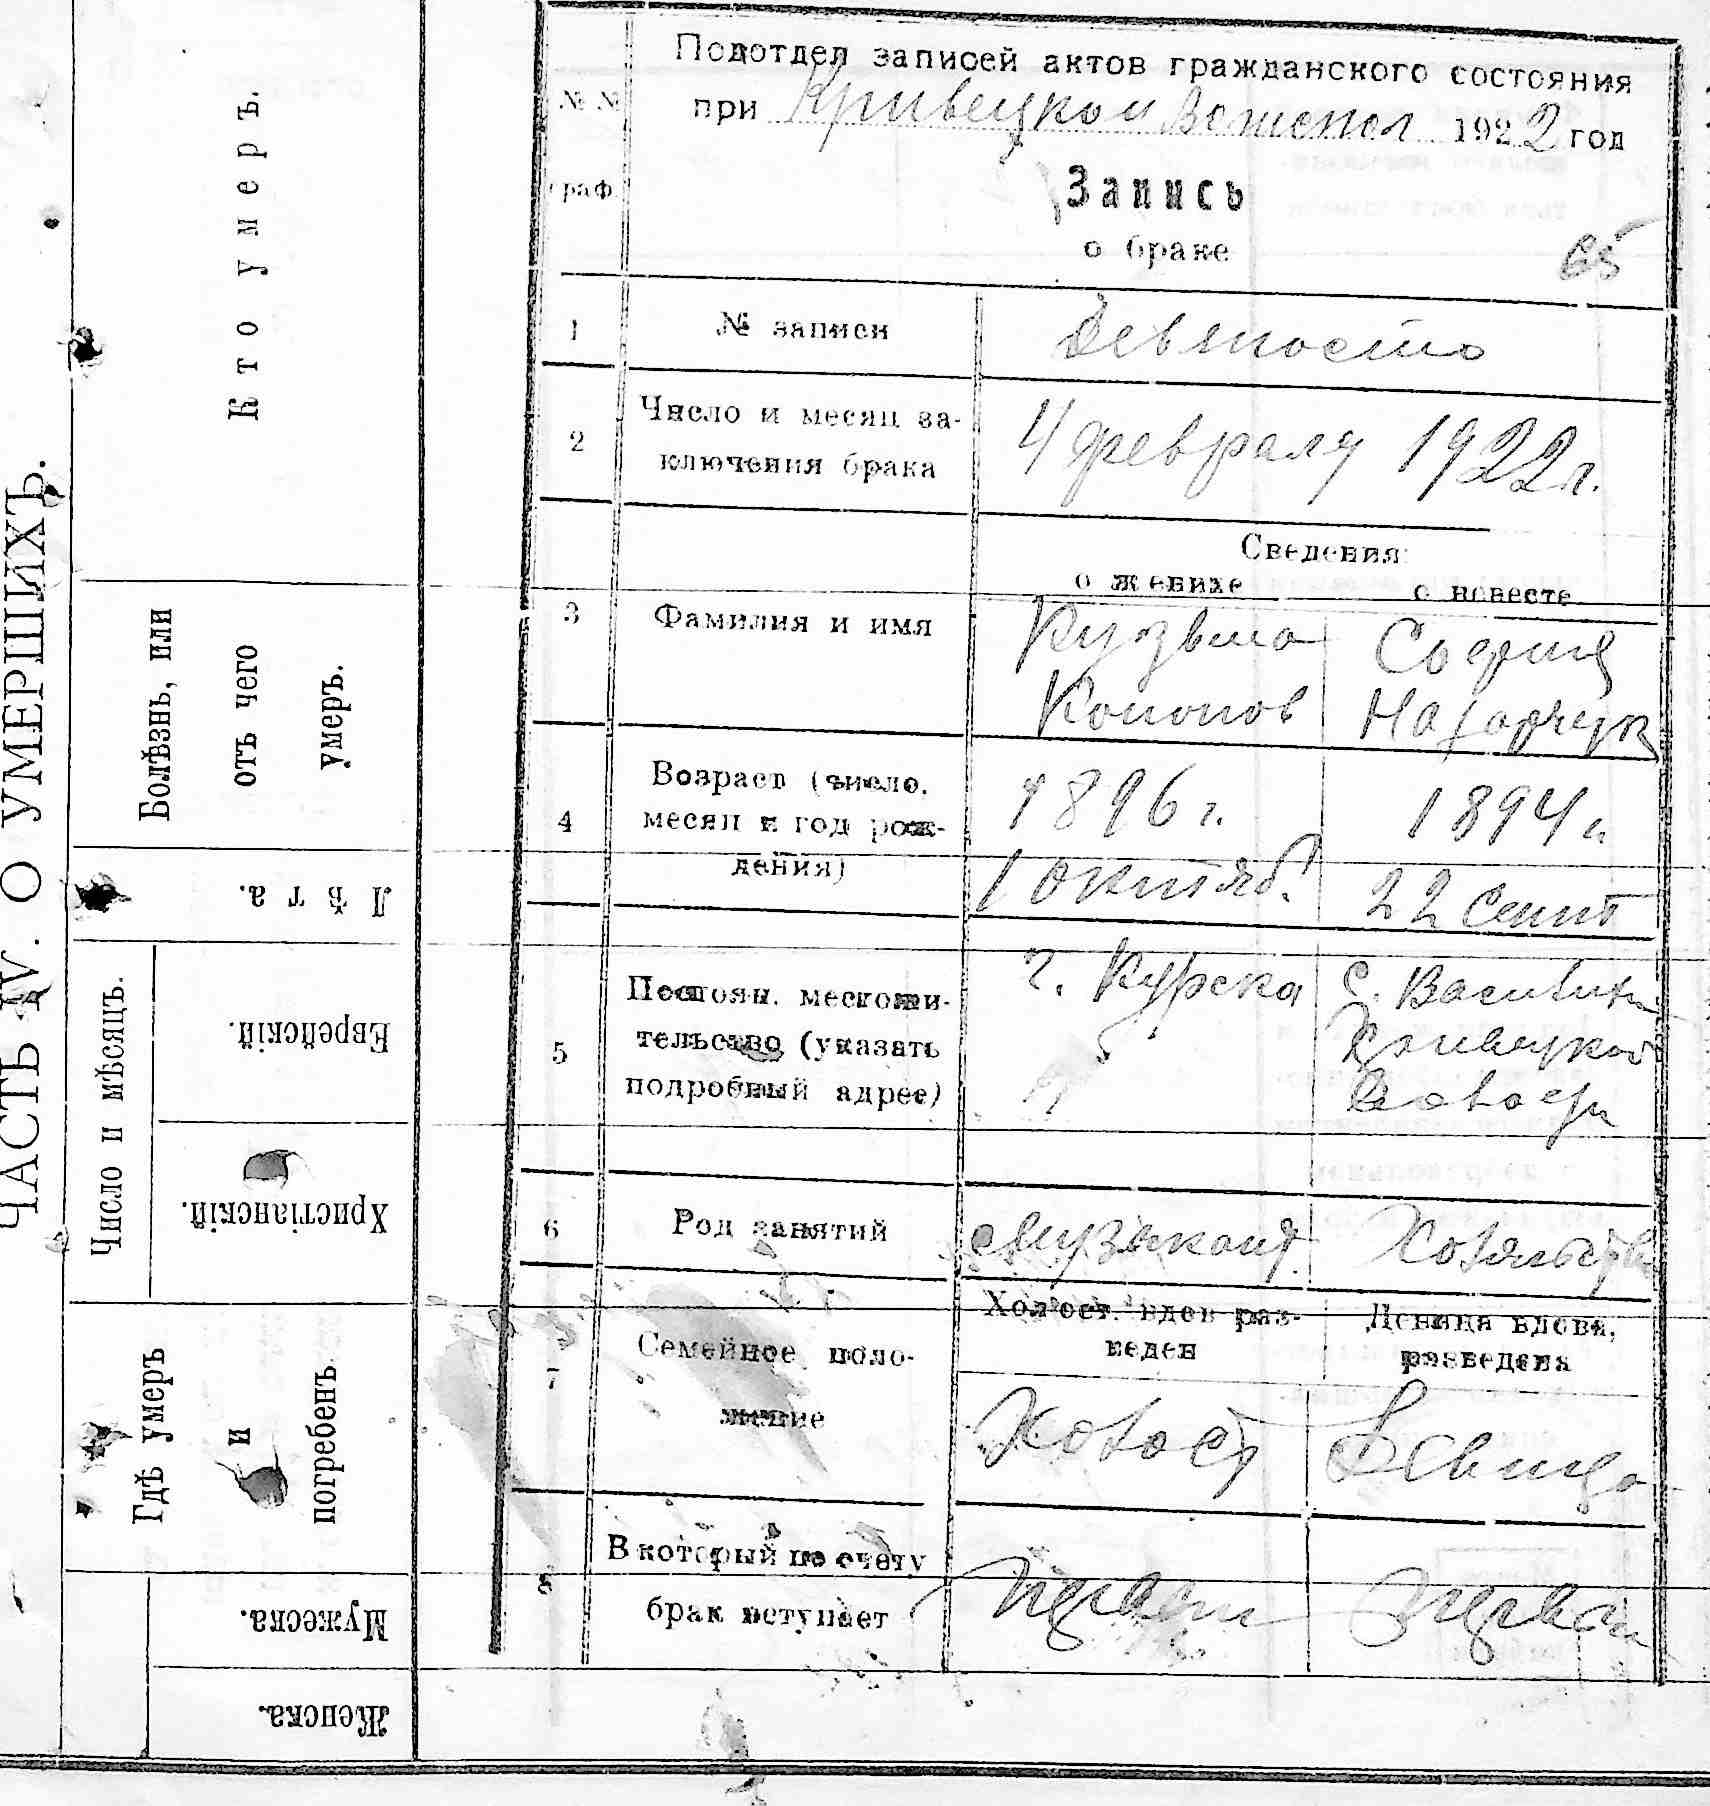 ЧАСТЬ IV. О УМЕРШИХЪ.
Кто умеръ.
Болѣзнь, или
отъ чего
умеръ.
Лѣта.
Число и мѣсяцъ.
Еврейскій.
Христіанскій.
Гдѣ умеръ
и
погребенъ
Мужеска.
Женска.
№ №
граф
Подотдел записей актов гражданского состояния
при Кривецком 1922 год
Запись
о браке
65
1 № записи Девяносто
2 Число и месяц за-
ключения брака 4 февраля 1922 г.
Сведения:
о женихе о невесте
3 Фамилия и имя Кузьма София
Кононов Назарчук
4 Возраст (число,
месяц и год рож-
дения)
1896 г. 1894 г.
1 октяб. 22 Сент
5 Постоян. местожи-
тельство (указать
подробный адрес)
г. Курска с.
6 Род занятий Музыкант Хозяйства
7 Семейное поло-
жение
Холост. вдов раз-
веден
Девица вдова,
разведена
Холост Девица
8 В который по счету
брак вступает